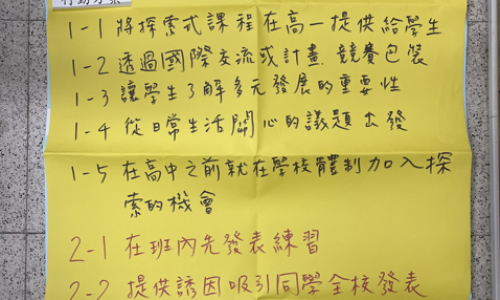 行動方案
1-1 將探索式課程在高一提供給學生
1-2 透過國際交流或計畫.競賽包裝
1-3 讓學生了解多元發展的重要性
1-4 從日常生活關心的議題出發
1-5 在高中之前就在學校體制加入探
索的機會
2-1 在班內先發表練習
2-2 提供誘因吸引同學全校發表